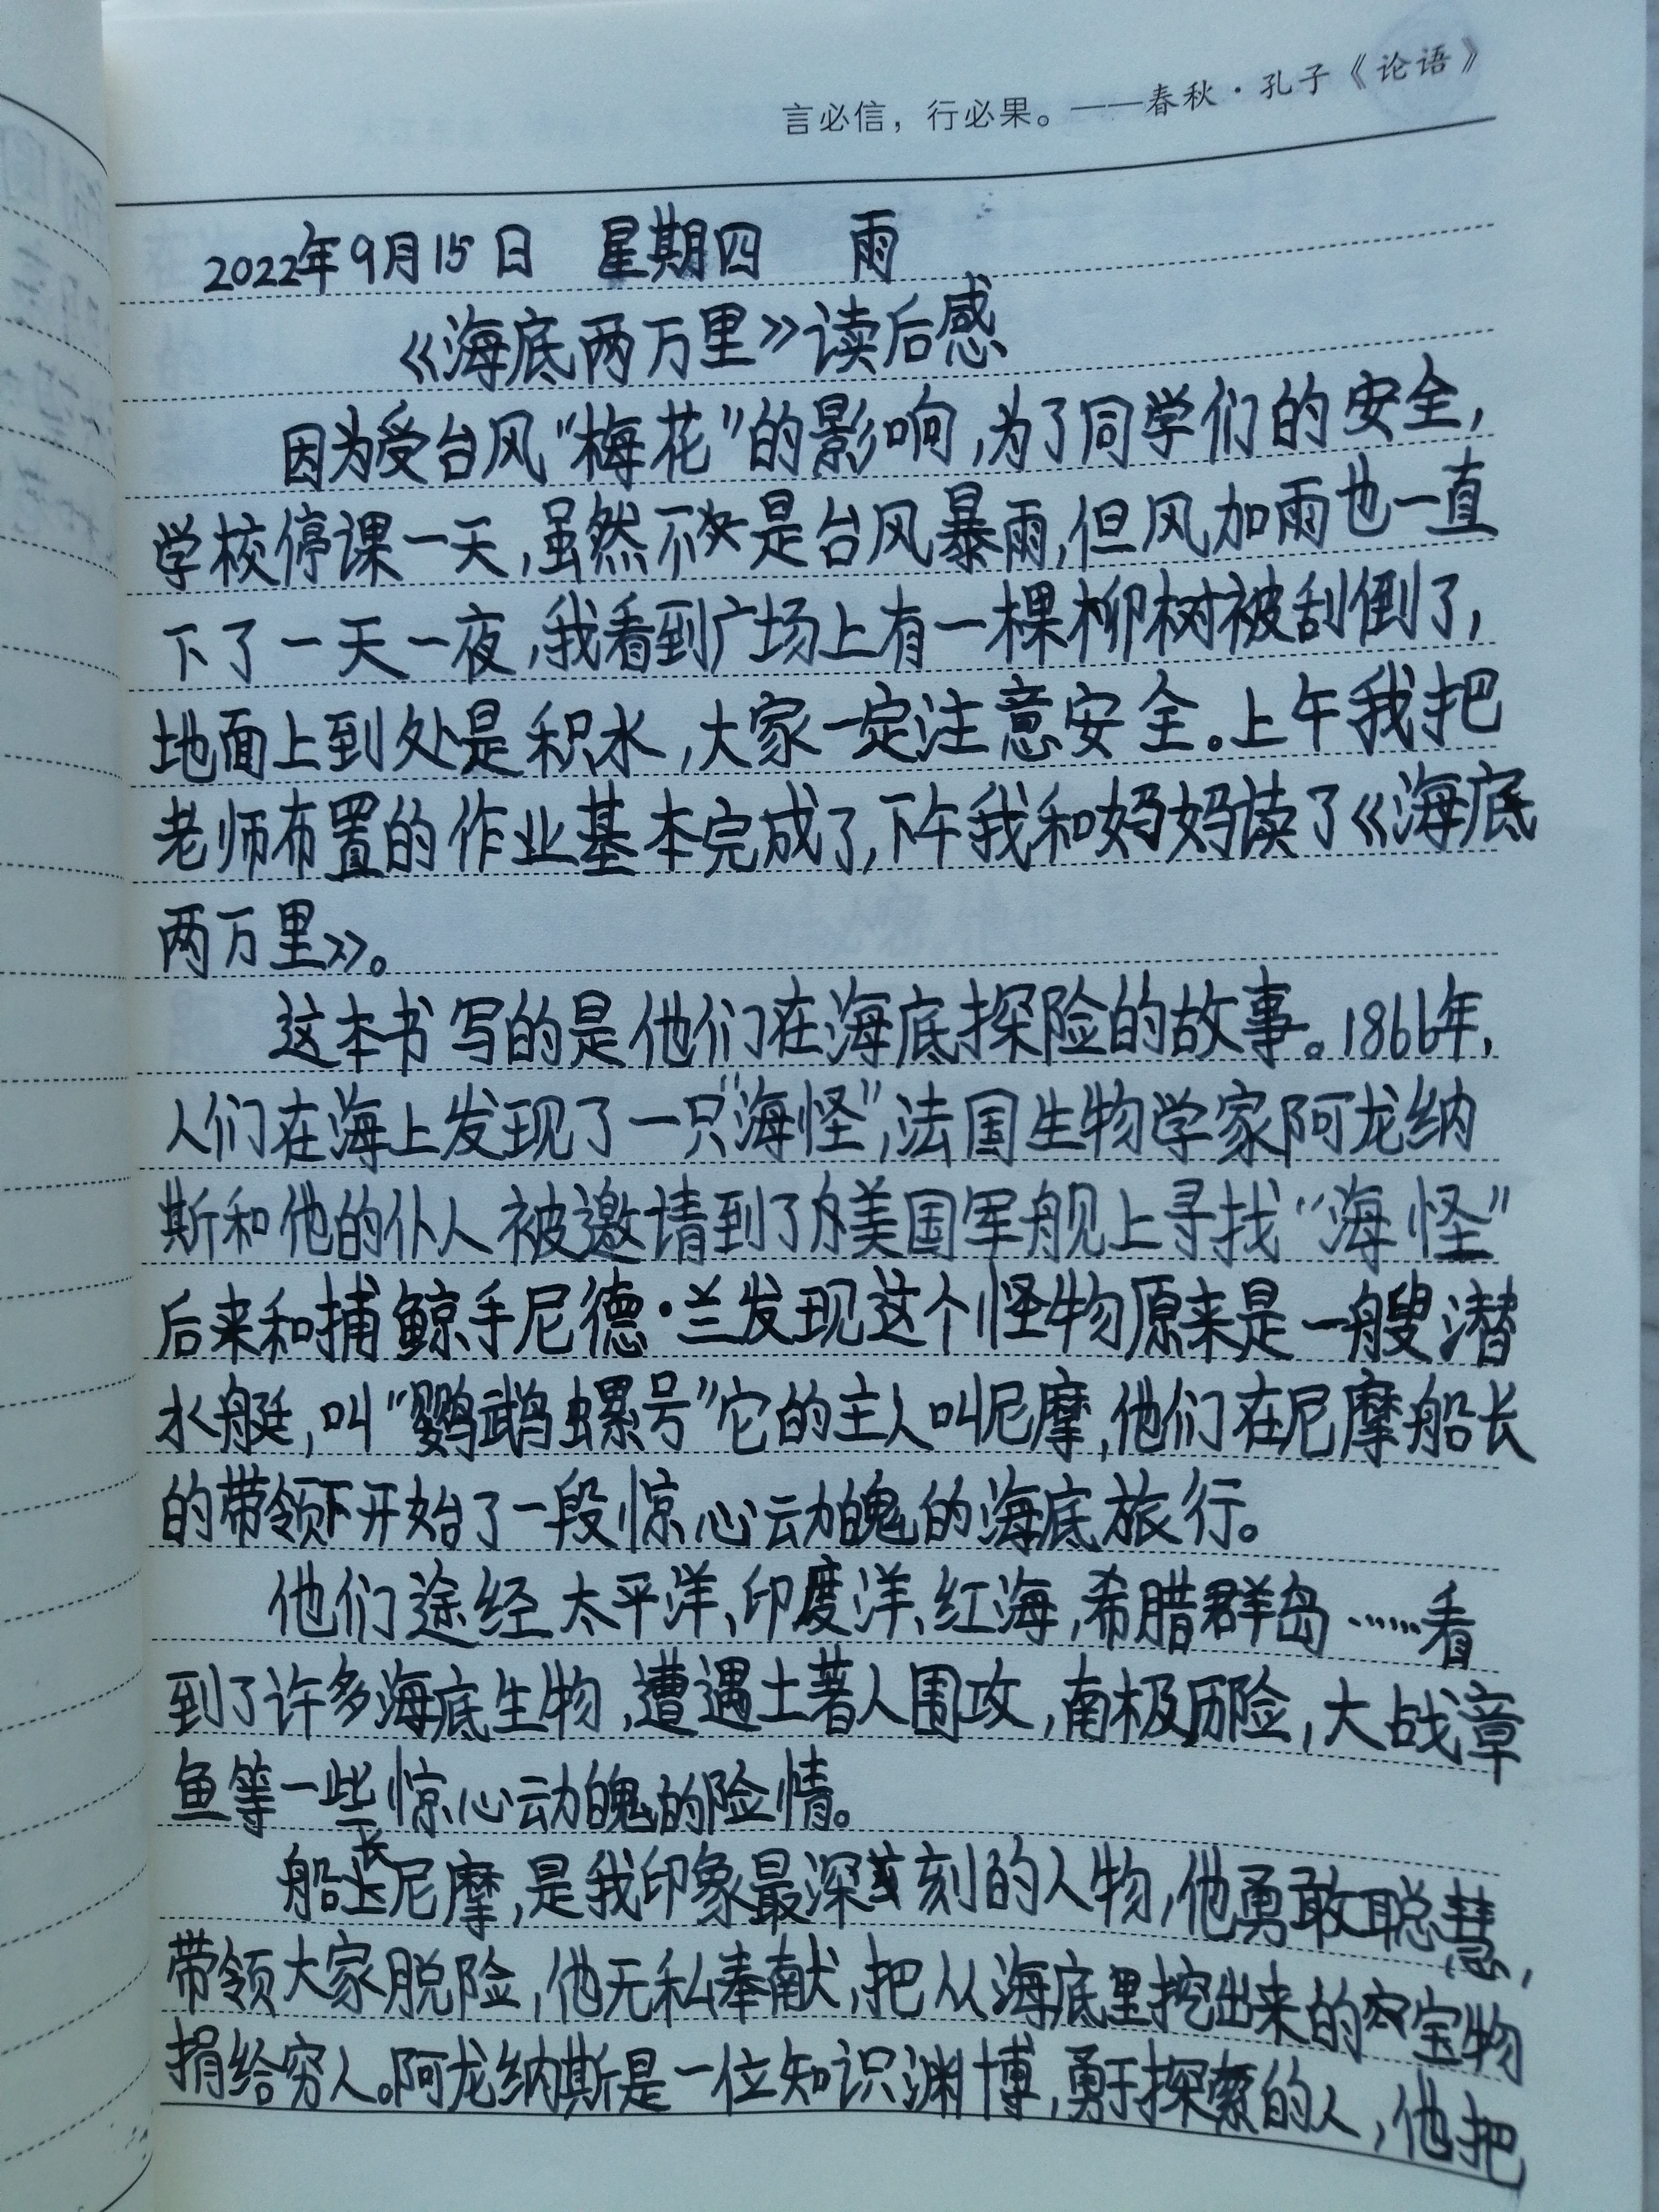 言必信，行必果。——春秋·孔子《论语》
2022年9月15日 星期四 雨
《海底两万里》读后感
因为受台风“梅花”的影响,为了同学们的安全,
学校停课一天,虽然不是台风暴雨,但风加雨也一直
下了一天一夜,我看到广场上有一棵柳树被刮倒了,
地面上到处是积水,大家一定注意安全。上午我把
老师布置的作业基本完成了,下午我和妈妈读了《海底
两万里》。
这本书写的是他们在海底探险的故事。1866年,
人们在海上发现了一只“海怪”,法国生物学家阿龙纳
斯和他的仆人被邀请到了美国军舰上寻找“海怪”
后来和捕鲸手尼德·兰发现这个怪物原来是一艘潜
水艇,叫“鹦鹉螺号”它的主人叫尼摩,他们在尼摩船长
的带领下开始了一段惊心动魄的海底旅行。
他们途经太平洋、印度洋、红海,希腊群岛……看
到了许多海底生物,遭遇土著人围攻,南极历险,大战章
鱼等一些惊心动魄的险情。
船长尼摩,是我印象最深刻的人物,他勇敢聪慧,
带领大家脱险,他无私奉献,把从海底里挖出来的宝物
捐给穷人。阿龙纳斯是一位知识渊博,勇于探索的人,他把